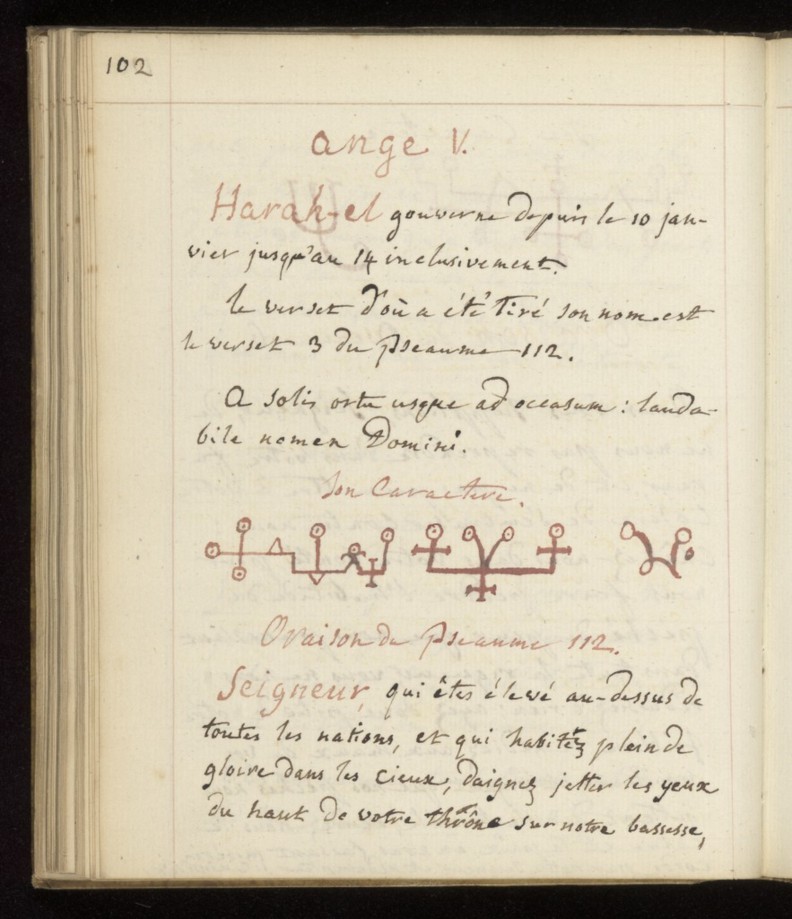 102
ange V.
Harah-el gouverne depuis le 10 jan-
vier jusqu'au 14 inclusivement.
le verset d'où a été tiré son nom est
le verset 3 du pseaume 112.
A solis ortu usque ad occasum : lauda-
bile nomen Domini.
Son Caractere.
Oraison du pseaume 112.
Seigneur, qui êtes élevé au-dessus de
toutes les nations, et qui habitez plein de
gloire dans les cieux, daignez jetter les yeux
du haut de votre thrône sur notre bassesse,